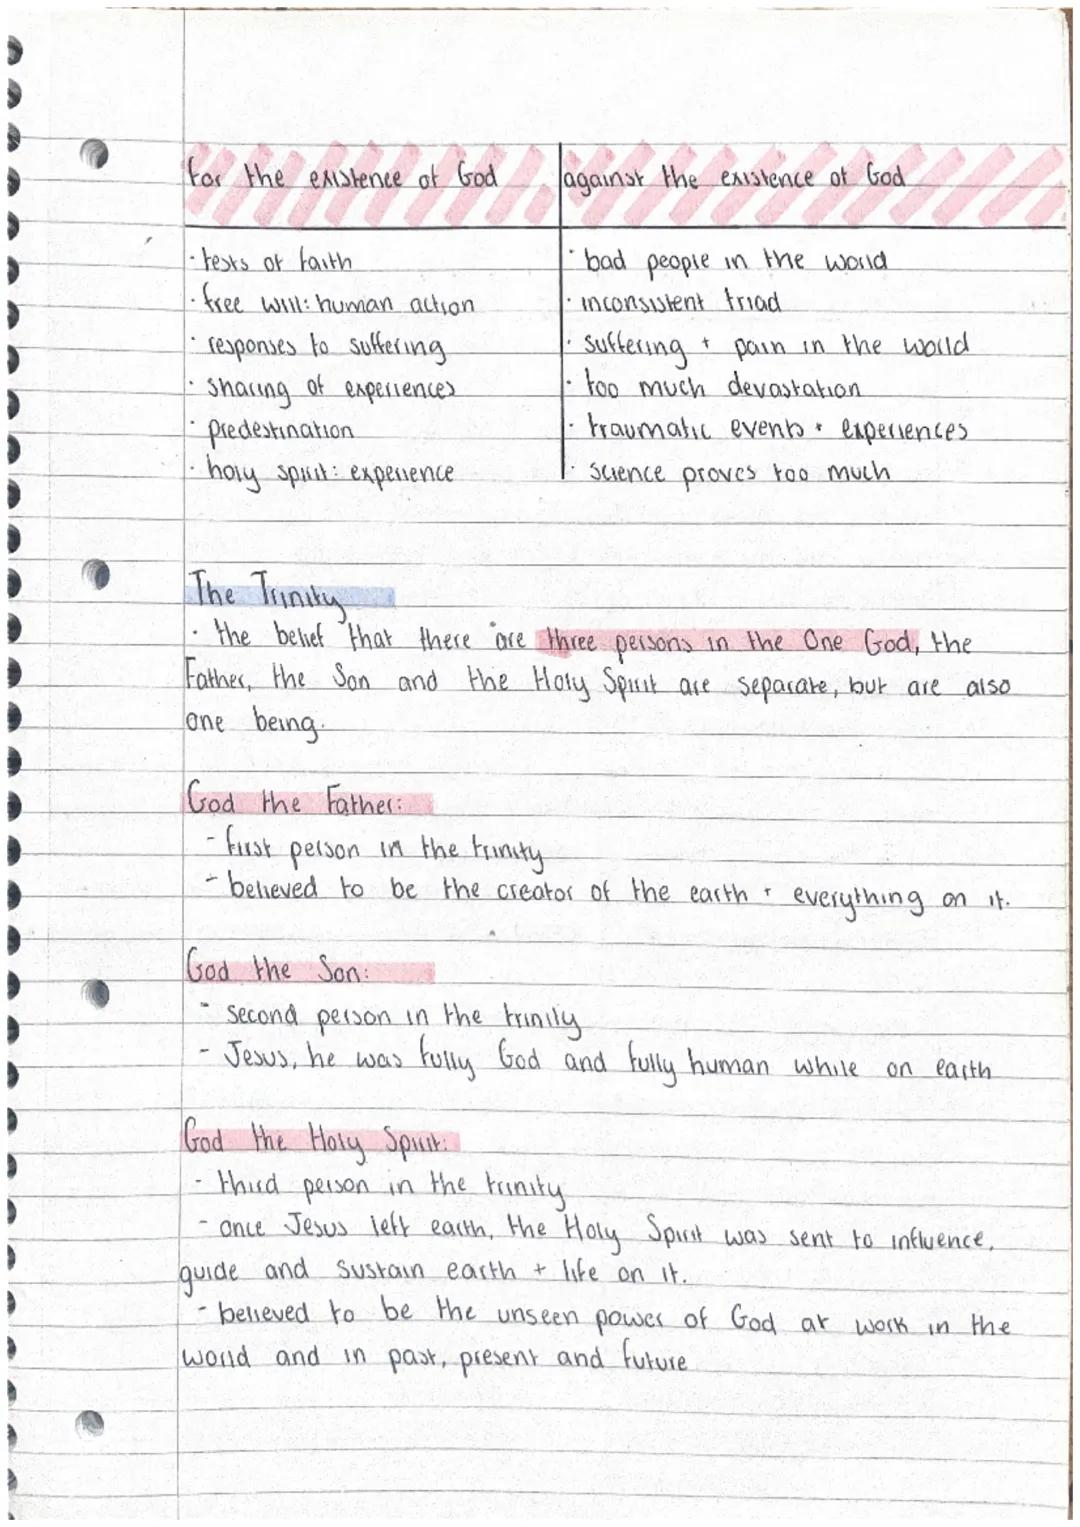 for the existence of God | against the existence of God
· tests of faith | · bad people in the world
· free will: human action | · inconsistent triad
· responses to suffering | · suffering + pain in the world
· sharing of experiences | · too much devastation
· predestination | · traumatic events + experiences
· holy spirit: experience | · science proves too much
The Trinity
· the belief that there are three persons in the One God, the
Father, the Son and the Holy Spirit are separate, but are also
one being.
God the Father:
- first person in the trinity
- believed to be the creator of the earth + everything on it.
God the Son:
- second person in the trinity
- Jesus, he was fully God and fully human while on earth
God the Holy Spirit:
- third person in the trinity
- once Jesus left earth, the Holy Spirit was sent to influence,
guide and sustain earth + life on it.
- believed to be the unseen power of God at work in the
world and in past, present and future